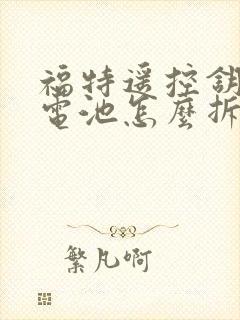 福特遥控鑰
電池怎麼拆
繁凡啊